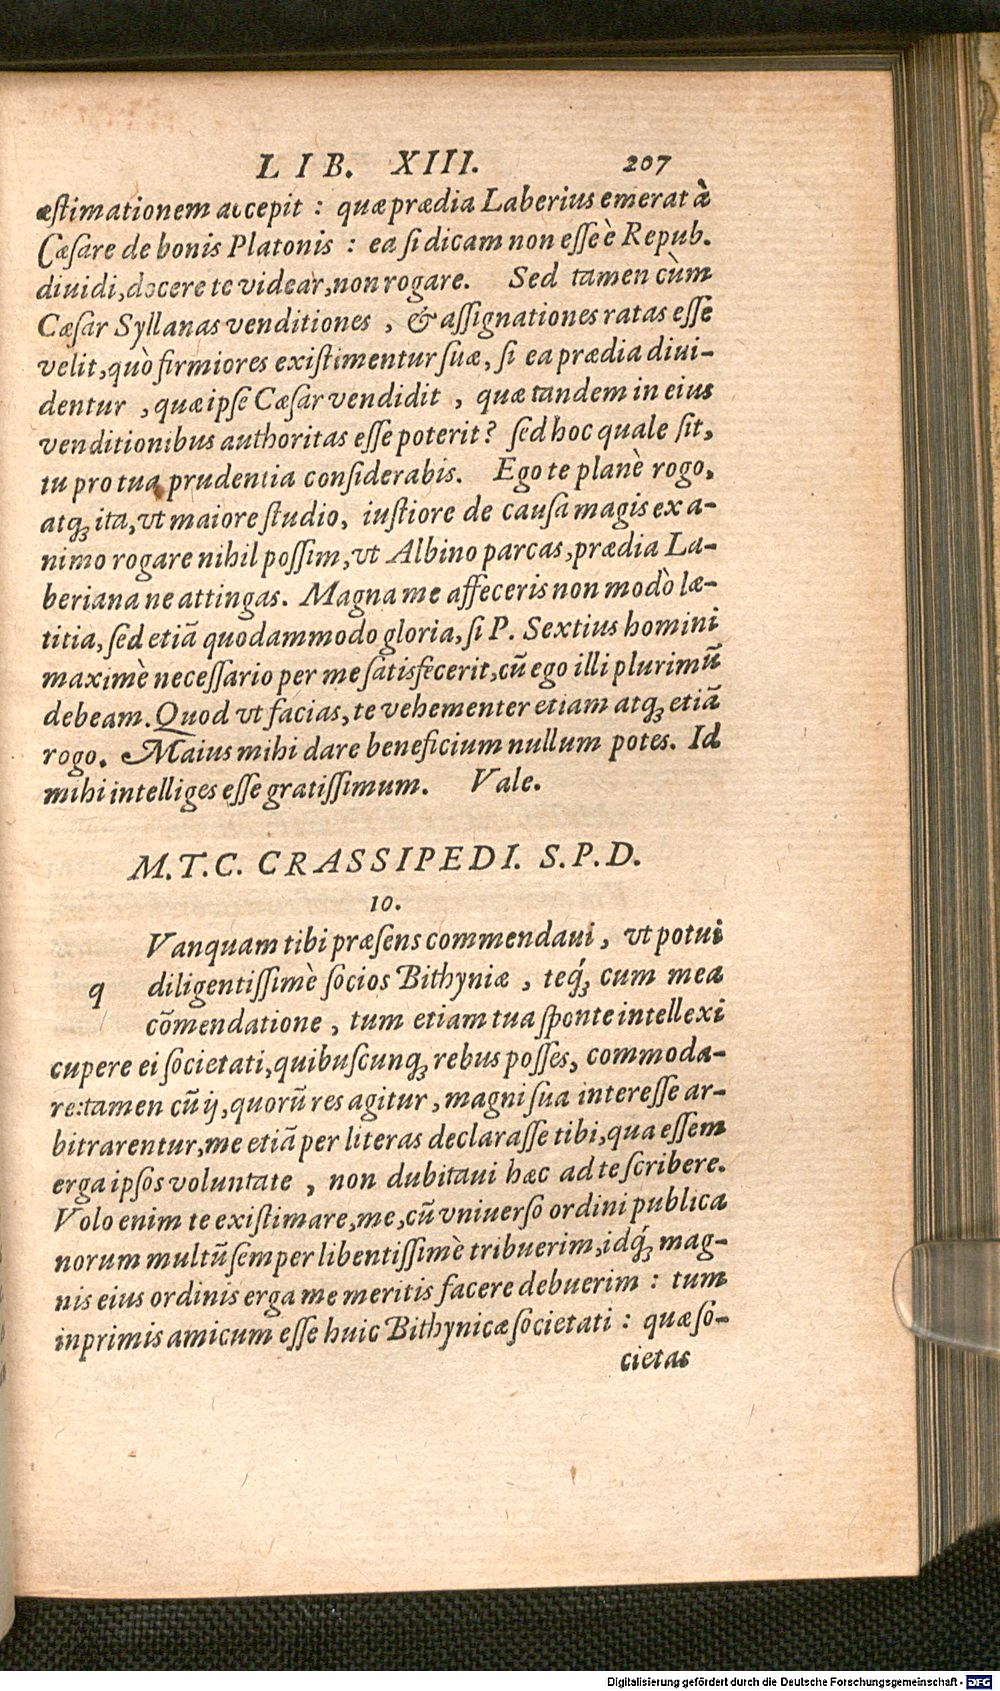 LIB. XIII. 207
æstimationem accepit : quæ prædia Laberius emerat à
Cæsare de bonis Platonis : ea si dicam non esse è Repub.
diuidi, docere te videar, non rogare. Sed tamen cùm
Cæsar Syllanas venditiones , & assignationes ratas esse
velit, quò firmiores existimentur suæ, si ea prædia diui-
dentur , quæ ipse Cæsar vendidit , quæ tandem in eius
venditionibus authoritas esse poterit? sed hoc quale sit,
tu pro tua prudentia considerabis. Ego te planè rogo,
atq; ita, vt maiore studio, iustiore de causa magis ex a-
nimo rogare nihil possim, vt Albino parcas, prædia La-
beriana ne attingas. Magna me affeceris non modò læ-
titia, sed etiã quodammodo gloria, si P. Sextius homini
maximè necessario per me satisfecerit, cũ ego illi plurimũ
debeam. Quod vt facias, te vehementer etiam atq; etiã
rogo. Maius mihi dare beneficium nullum potes. Id
mihi intelliges esse gratissimum. Vale.
M. T. C. CRASSIPEDI. S. P. D.
10.
q Vanquam tibi præsens commendaui, vt potui
diligentissimè socios Bithyniæ , teq́; cum mea
cõmendatione , tum etiam tua sponte intellexi
cupere ei societati, quibuscunq; rebus posses, commoda-
re: tamen cũ ij, quorũ res agitur, magni sua interesse ar-
bitrarentur, me etiã per literas declarasse tibi, qua essem
erga ipsos voluntate , non dubitaui hæc ad te scribere.
Volo enim te existimare, me, cũ vniuerso ordini publica
norum multũ semper libentissimè tribuerim, idq́; mag-
nis eius ordinis erga me meritis facere debuerim : tum
inprimis amicum esse huic Bithynicæ societati : quæ so-
cietas
Digitalisierung gefördert durch die Deutsche Forschungsgemeinschaft - DFG